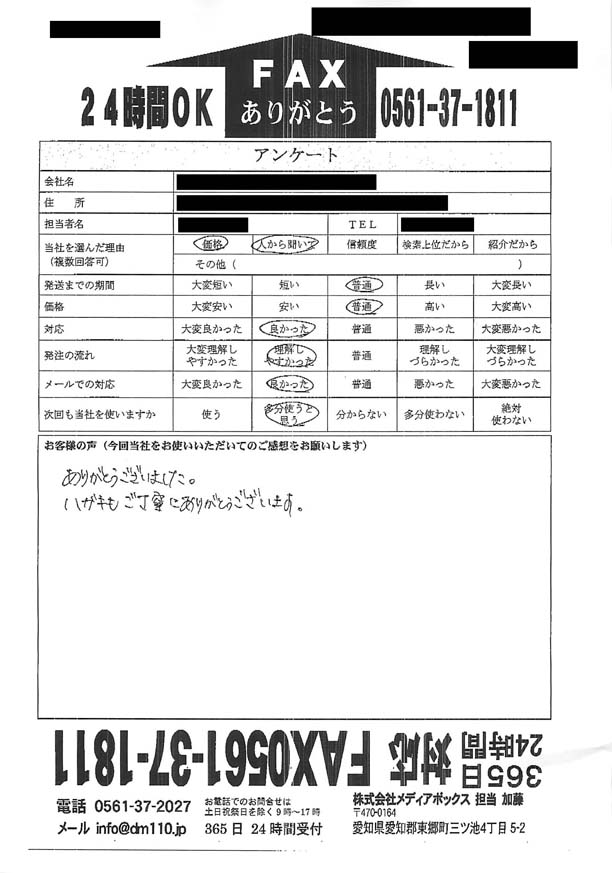 FAX
ありがとう
24時間OK
0561-37-1811
アンケート
会社名
住 所
担当者名 TEL
当社を選んだ理由
(複数回答可)
価格 人から聞いて 信頼度 検索上位だから 紹介だから
その他 ( )
発送までの期間 大変短い 短い 普通 長い 大変長い
価格 大変安い 安い 普通 高い 大変高い
対応 大変良かった 良かった 普通 悪かった 大変悪かった
発注の流れ 大変理解し
やすかった 理解し
やすかった 普通 理解し
づらかった 大変理解し
づらかった
メールでの対応 大変良かった 良かった 普通 悪かった 大変悪かった
次回も当社を使いますか 使う 多分使うと
思う 分からない 多分使わない 絶対
使わない
お客様の声(今回当社をお使いいただいてのご感想をお願いします)
ありがとうございました。
ハガキもご丁寧にありがとうございます。
365日
24時間
対応 FAX0561-37-1811
電話 0561-37-2027
お電話でのお問合せは
土日祝祭日を除く9時~17時
メール info@dm110.jp
365日 24時間受付
株式会社メディアボックス 担当 加藤
〒470-0164
愛知県愛知郡東郷町三ツ池4丁目5-2